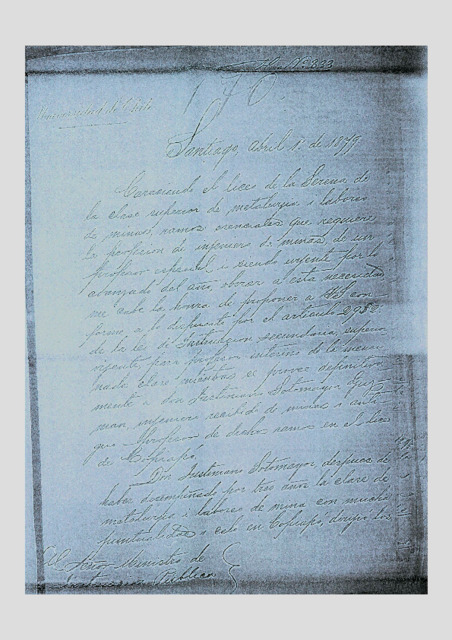 No. 333
176
Universidad de Chile
Santiago Abril 1º de 1879.
Careciendo el liceo de la Serena de
la clase superior de metalurgia i labores
de minas, ramos esenciales que requiere
la profesion de injeniero de minas, de un
profesor especial i siendo urjente por lo
avanzado del año, obviar a esta necesidad
me cabe la honra de proponer a US con
forme a lo dispuesto por el artículo 29
de la lei de Instruccion secundaria superior
vijente, para profesor interino de la mencio
nada clase mientras se provee definitiva
mente a don Justiniano Sotomayor Guz
man, injeniero recibido de minas i anti
guo profesor de dichos ramos en el liceo
de Copiapó.
Don Justiniano Sotomayor, despues de
haber desempeñado por tres años la clase de
metalurjia i labores de mina con mucha
puntualidad i celo en Copiapó, dirijió los
Al Señor Ministro de
Instruccion Pública